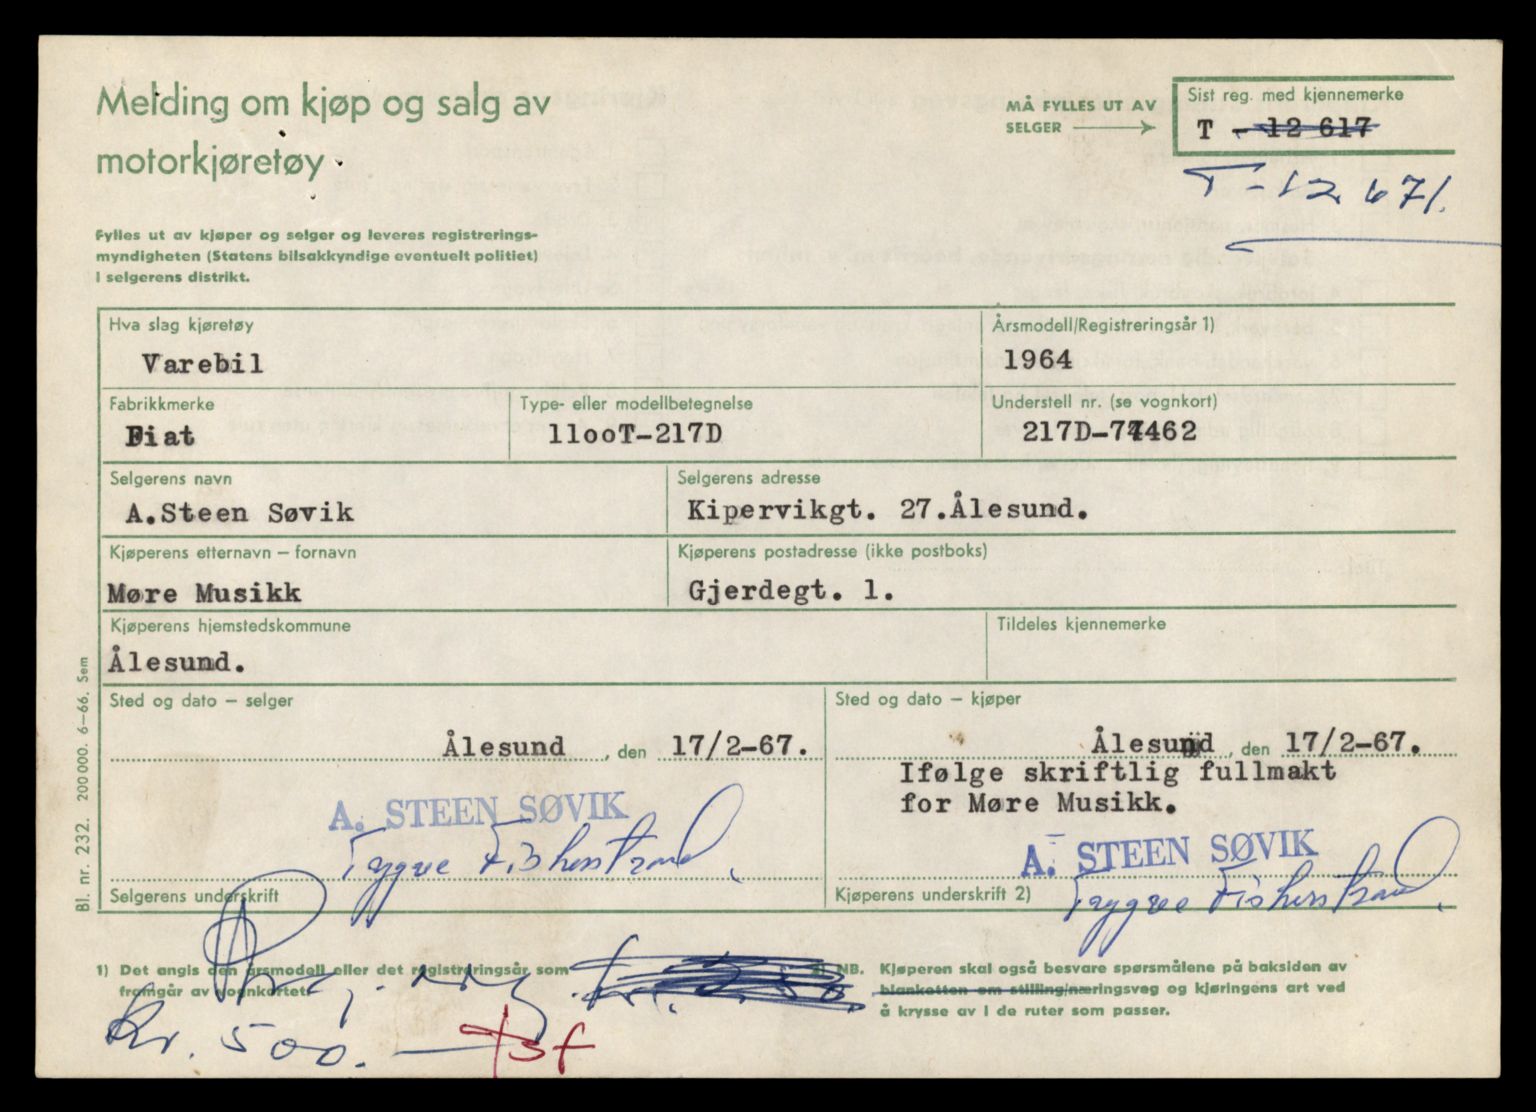 Melding om kjøp og salg av
motorkjøretøy
MÅ FYLLES UT AV
SELGER
Sist reg. med kjennemerke
T - 12 617
T-12671.
Fylles ut av kjøper og selger og leveres registrerings-
myndigheten (Statens bilsakkyndige eventuelt politiet)
i selgerens distrikt.
Hva slag kjøretøy
Varebil
Årsmodell/Registreringsår 1)
1964
Fabrikkmerke
Fiat
Type- eller modellbetegnelse
11ooT-217D
Understell nr. (se vognkort)
217D-774462
Selgerens navn
A.Steen Søvik
Selgerens adresse
Kipervikgt. 27.Ålesund.
Kjøperens etternavn – fornavn
Møre Musikk
Kjøperens postadresse (ikke postboks)
Gjerdegt. 1.
Kjøperens hjemstedskommune
Ålesund.
Tildeles kjennemerke
Sted og dato – selger
Ålesund, den 17/2-67.
Sted og dato – kjøper
Ålesund, den 17/2-67.
Ifølge skriftlig fullmakt
for Møre Musikk.
A. STEEN SØVIK
Trygve Fiskerstrand.
Selgerens underskrift
A. STEEN SØVIK
Trygve Fiskerstrand.
Kjøperens underskrift 2)
1) Det angis den årsmodell eller det registreringsår som
framgår av vognkortet.
2) NB. Kjøperen skal også besvare spørsmålene på baksiden av
blanketten om stilling/næringsveg og kjøringens art ved
å krysse av i de ruter som passer.
kr. 500.-
Bl. nr. 232. 200 000. 6–66. Sem